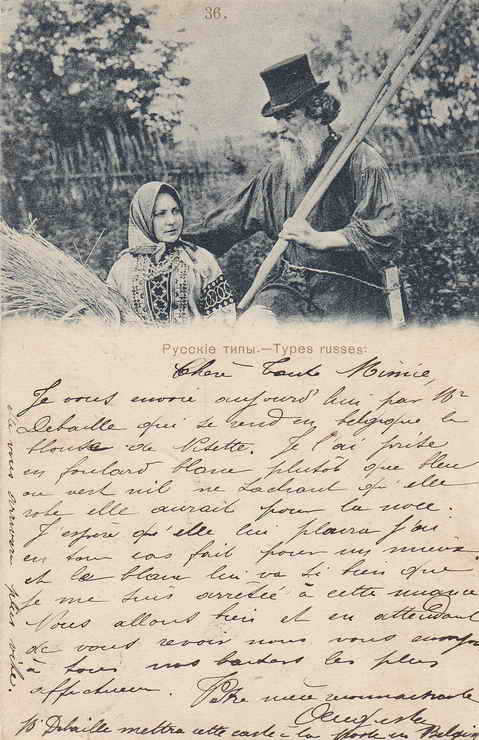 36.
Русскіе типы.—Types russes.
Chère Tante Mimie,
Je vous envoie aujourd'hui par Mr
Debaille qui se rend en belgique la
blouse de Lisette. Je l'ai prise
en foulard blanc plutôt que bleu
ou vert nil ne sachant qu'elle
robe elle aurait pour la noce.
J'espère qu'elle lui plaira j'ai
en tous cas fait pour un mieux
et le blanc lui va si bien que
je me suis arrêtée à cette nuance
Vous allons bien et en attendant
de vous revoir nous vous envoyons
à tous nos baisers les plus
affectueux. Votre nièce reconnaissante
Mr Debaille mettra cette carte à la poste en Belgique
elle vous arrivera plus vite.